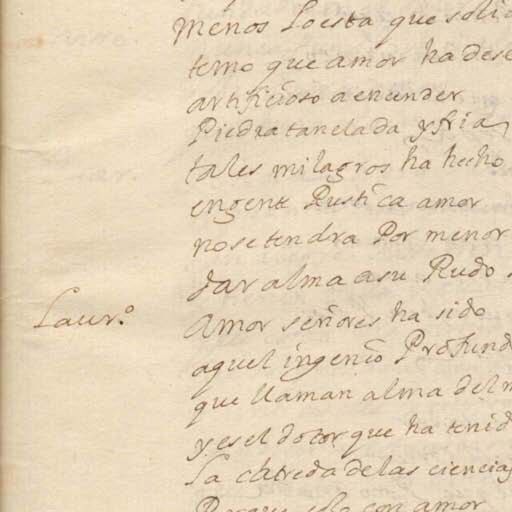 menos Loesta que solic
temo que amor ha dese
artificioso a encender
Piedra tan elada y fria
tales milagros ha hecho
en gente Rustica amor
no se tendra Por menor
dar alma a su Rudo
Laur.º Amor señores ha sido
aquel ingenio Profund
que llaman alma del m
y es el dotor que ha tenid
la catreda de las ciencias
Porque solo con amor